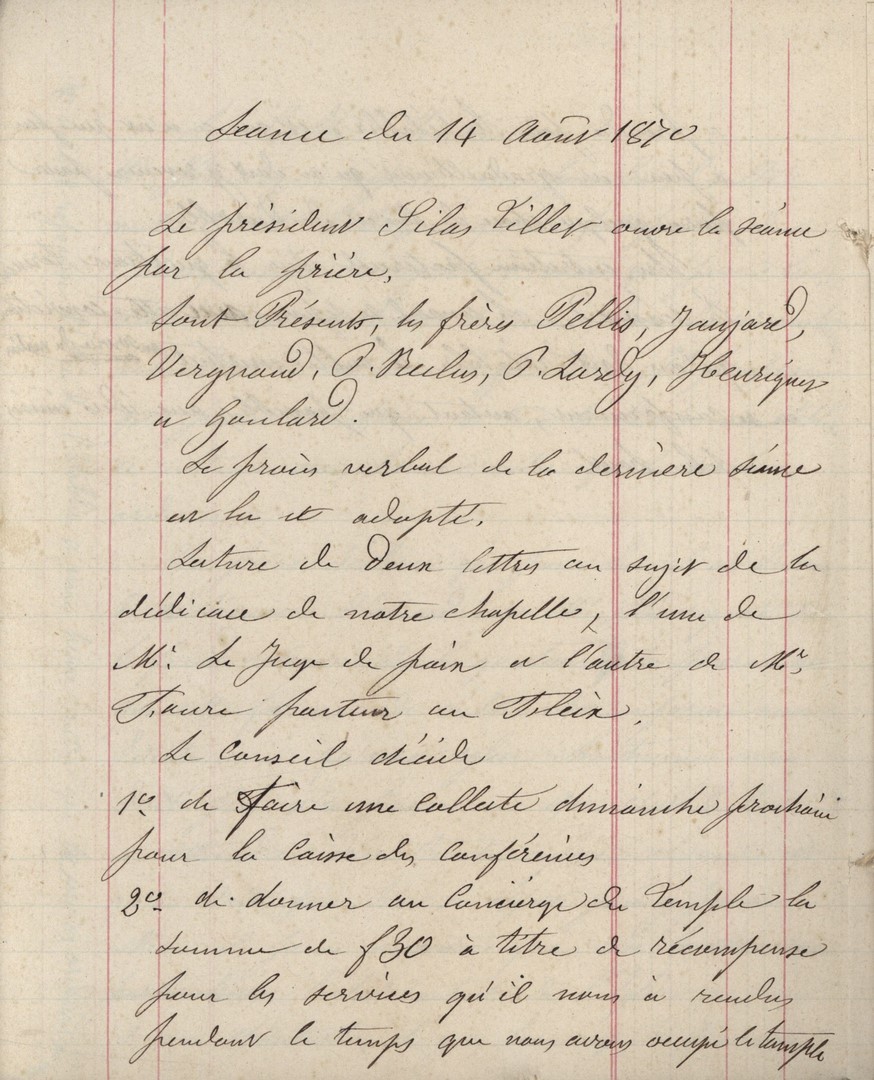 Séance du 14 Août 1870
Le président Silas Villet ouvre la séance
par la prière,
Sont Présents, les frères Pellis, Jaujard,
Vergnaud, P. Reclus, P. Lardy, Henriquez
et Goulard.
Le procès verbal de la dernière séance
est lu et adopté.
Lecture de deux lettres au sujet de la
dédicace de notre chapelle, l'une de
Mr. Le Juge de paix et l'autre de Mr.
Faure pasteur au Fleix.
Le Conseil décide
1º de faire une collecte dimanche prochain
pour la Caisse des Conférences
2º de donner au Concierge du Temple la
somme de f30 à titre de récompense
pour les services qu'il nous à rendus
pendant le temps que nous avons occupé le temple